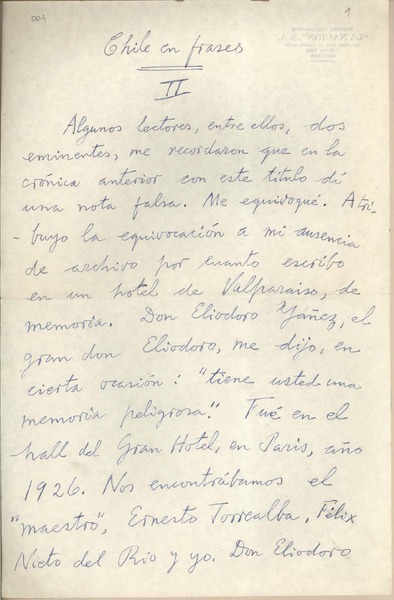 004
1
"LA NACION", S.A.
Chile en frases
II
Algunos lectores, entre ellos, dos
eminentes, me recordaron que en la
crónica anterior con este título dí
una nota falsa. Me equivoqué. Atri-
-buyo la equivocación a mi ausencia
de archivo por cuanto escribo
en un hotel de Valparaiso, de
memoria. Don Eliodoro Yáñez, el
gran don Eliodoro, me dijo, en
cierta ocasión: "tiene usted una
memoria peligrosa." Fué en el
hall del Gran Hotel, en Paris, año
1926. Nos encontrábamos el
"maestro", Ernesto Torrealba, Félix
Nieto del Río y yo. Don Eliodoro